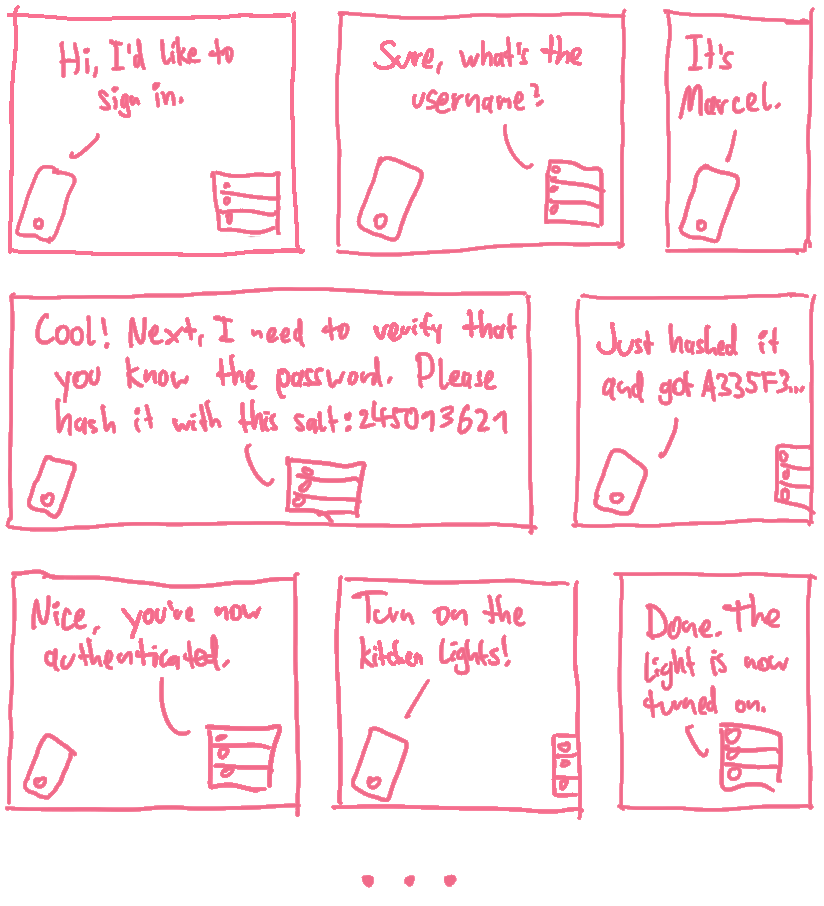 Hi, I'd like to
sign in.
Sure, what's the
username?
It's
Marcel.
Cool! Next, I need to verify that
you know the password. Please
hash it with this salt: 245013621
Just hashed it
and got A335F3...
Nice, you're now
authenticated.
Turn on the
kitchen lights!
Done. The
light is now
turned on.